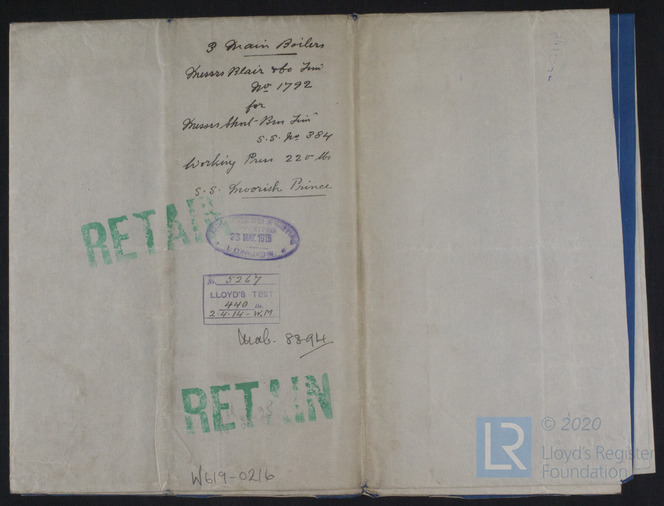 3 Main Boilers
Messrs Blair & Co Lim
No 1792
for
Messrs Short Bros Lim
S.S. No 384
Working Press 220 lbs
S.S. Moorish Prince
RETAIN
23 MAY 1915
LONDON
No. 5267
LLOYD'S TEST
440 lbs
2.4.14 - W.M.
8894
RETAIN
W619-0216
LR
© 2020
Lloyd's Register
Foundation